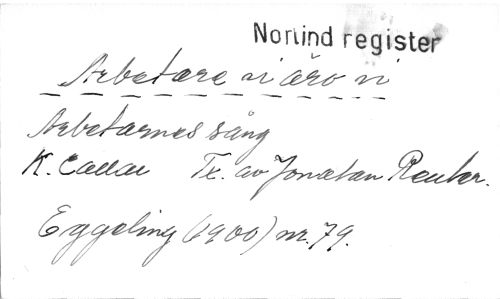 Norlind register
Arbetare vi äro vi
Arbetarnes sång
K. Collan Tx. av Jonatan Reuter.
Eggeling (1900) nr. 79.